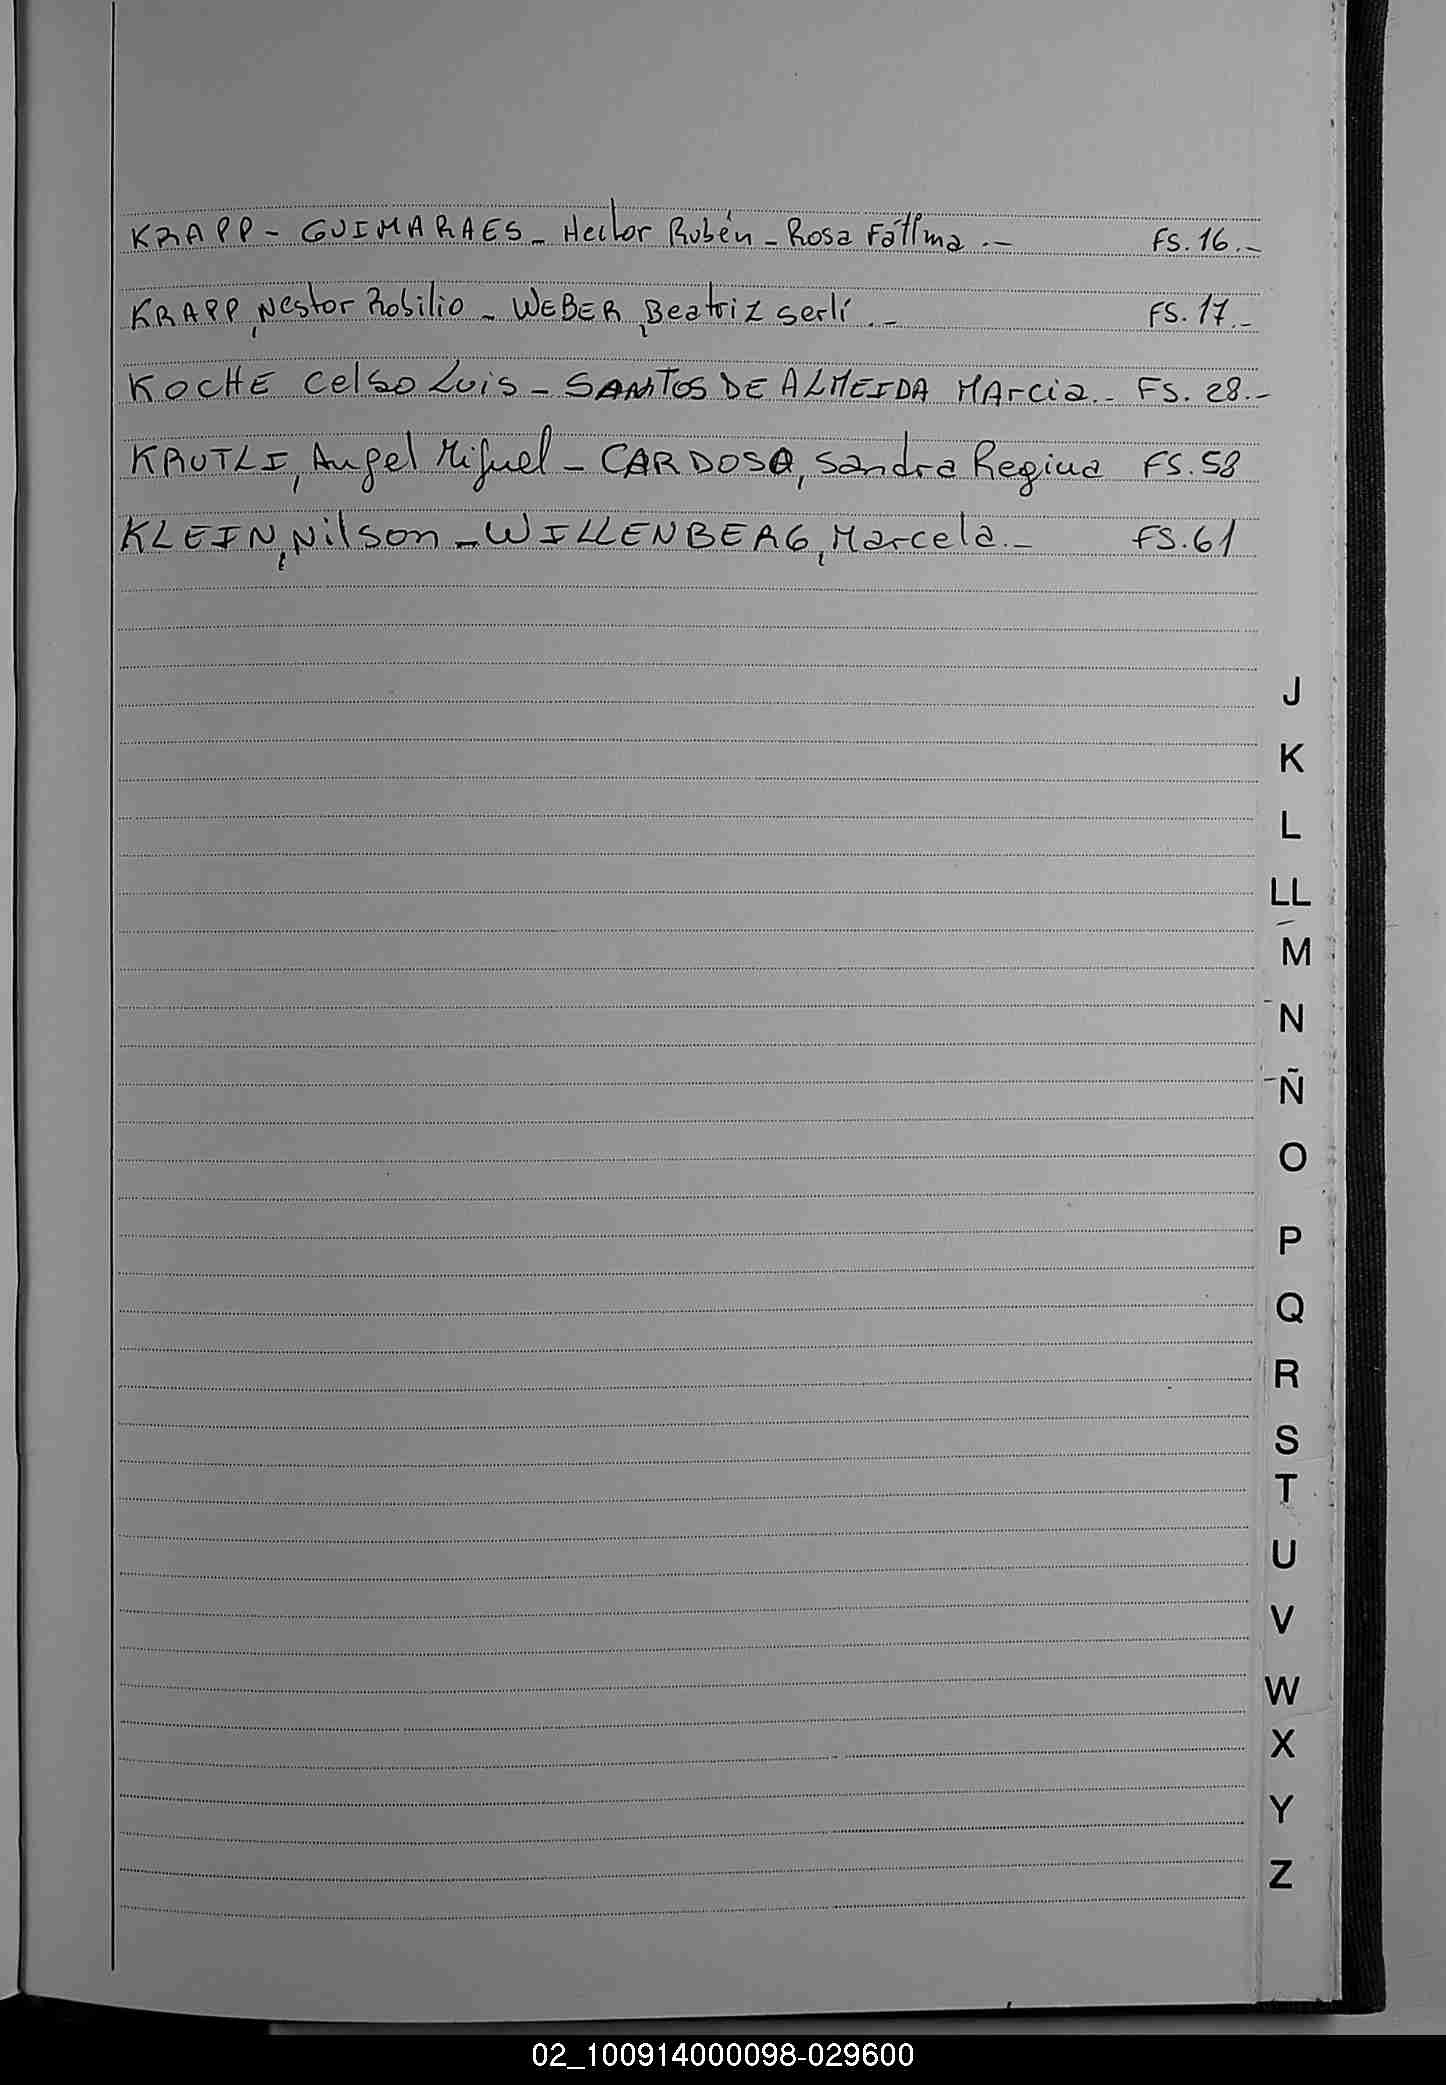 KRAPP - GUIMARAES - Hector Rubén - Rosa Fátima .- FS. 16.-
KRAPP, Nestor Robilio - WEBER, Beatriz Serlí .- FS. 17.-
KOCHE Celso Luis - SANTOS DE ALMEIDA MArcia.- FS. 28.-
KRUTLI, Angel Miguel - CARDOSO, Sandra Regina FS. 58
KLEIN, Nilson - WILLENBERG, Marcela.- FS. 61
J
K
L
LL
M
N
Ñ
O
P
Q
R
S
T
U
V
W
X
Y
Z
02_100914000098-029600